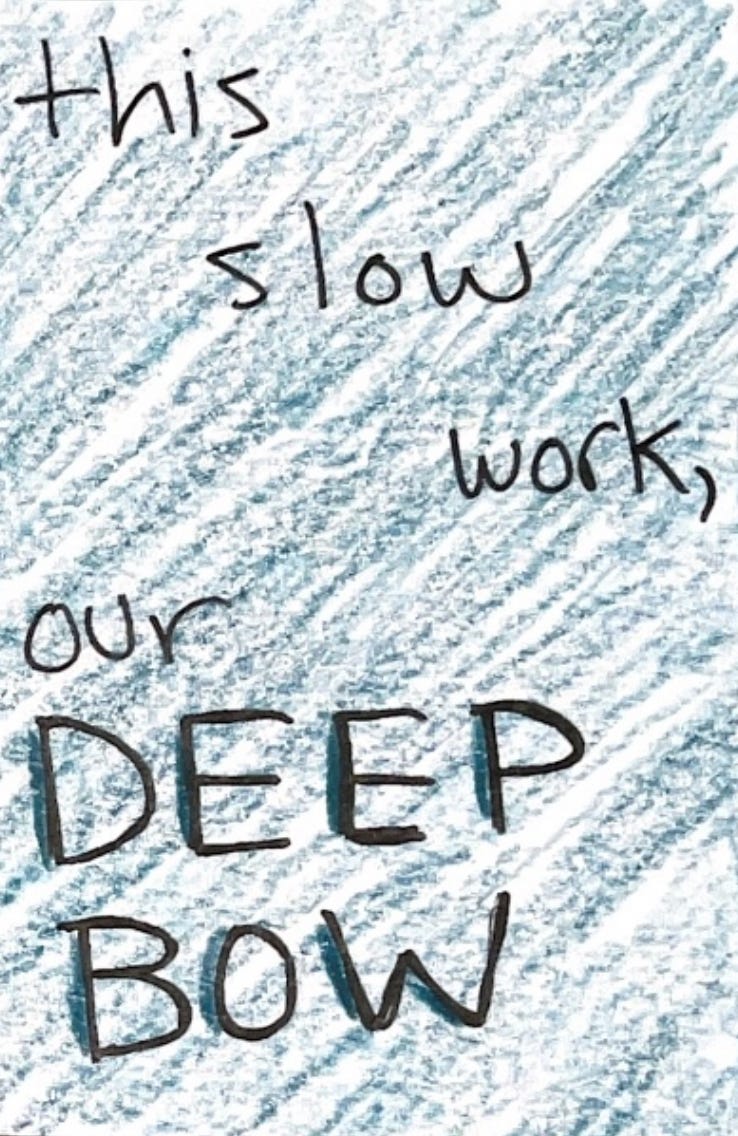 this
slow
work,
our
DEEP
BOW